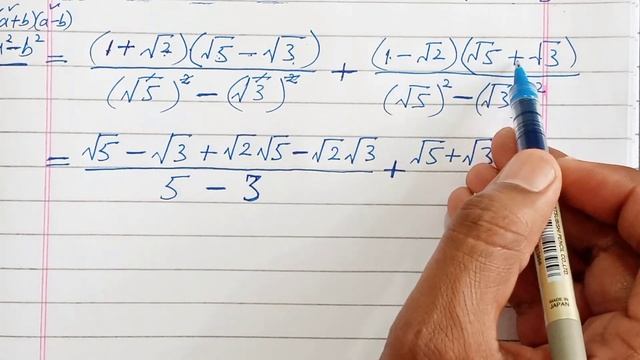 (a+b)(a-b)
a²-b² = (1+√2)(√5-√3) / (√5)²-(√3)² + (1-√2)(√5+√3) / (√5)²-(√3)²
= √5-√3+√2√5-√2√3 / 5-3 + √5+√3
MADE IN
JAPAN